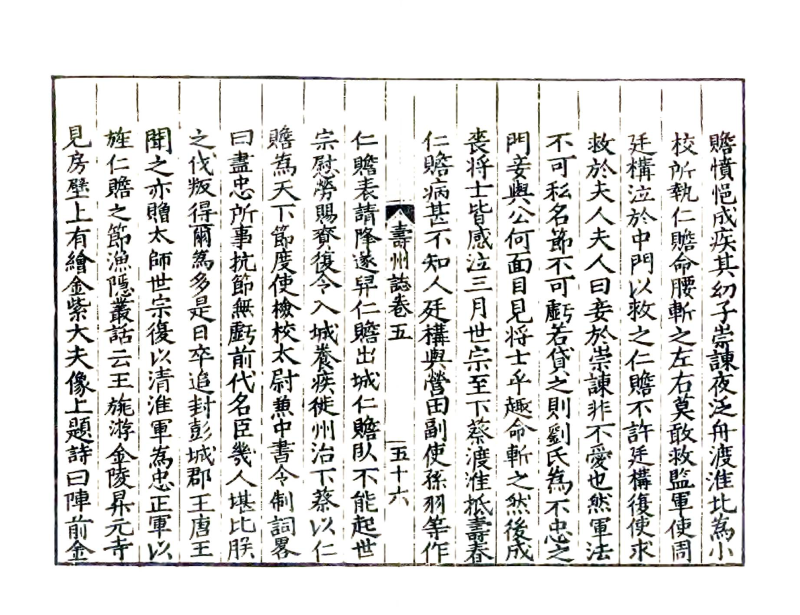 贍憤悒成疾其幼子崇諫夜泛舟渡淮北為小
校所執仁贍命腰斬之左右莫敢救監軍使周
廷構泣於中門以救之仁贍不許廷構復使求
救於夫人夫人曰妾於崇諫非不愛也然軍法
不可私名節不可虧若貸之則劉氏為不忠之
門妾與公何面目見將士乎趣命斬之然後成
喪將士皆感泣三月世宗至下蔡渡淮抵壽春
仁贍病甚不知人廷構與營田副使孫羽等作
壽州誌卷五
五十六
仁贍表請降遂舁仁贍出城仁贍臥不能起世
宗慰勞賜賚復令入城養疾徙州治下蔡以仁
贍為天下節度使檢校太尉兼中書令制詞畧
曰盡忠所事抗節無虧前代名臣幾人堪比朕
之伐叛得爾為多是日卒追封彭城郡王唐王
聞之亦贈太師世宗復以清淮軍為忠正軍以
旌仁贍之節漁隱叢話云王旎游金陵昇元寺
見房壁上有繪金紫大夫像上題詩曰陣前金